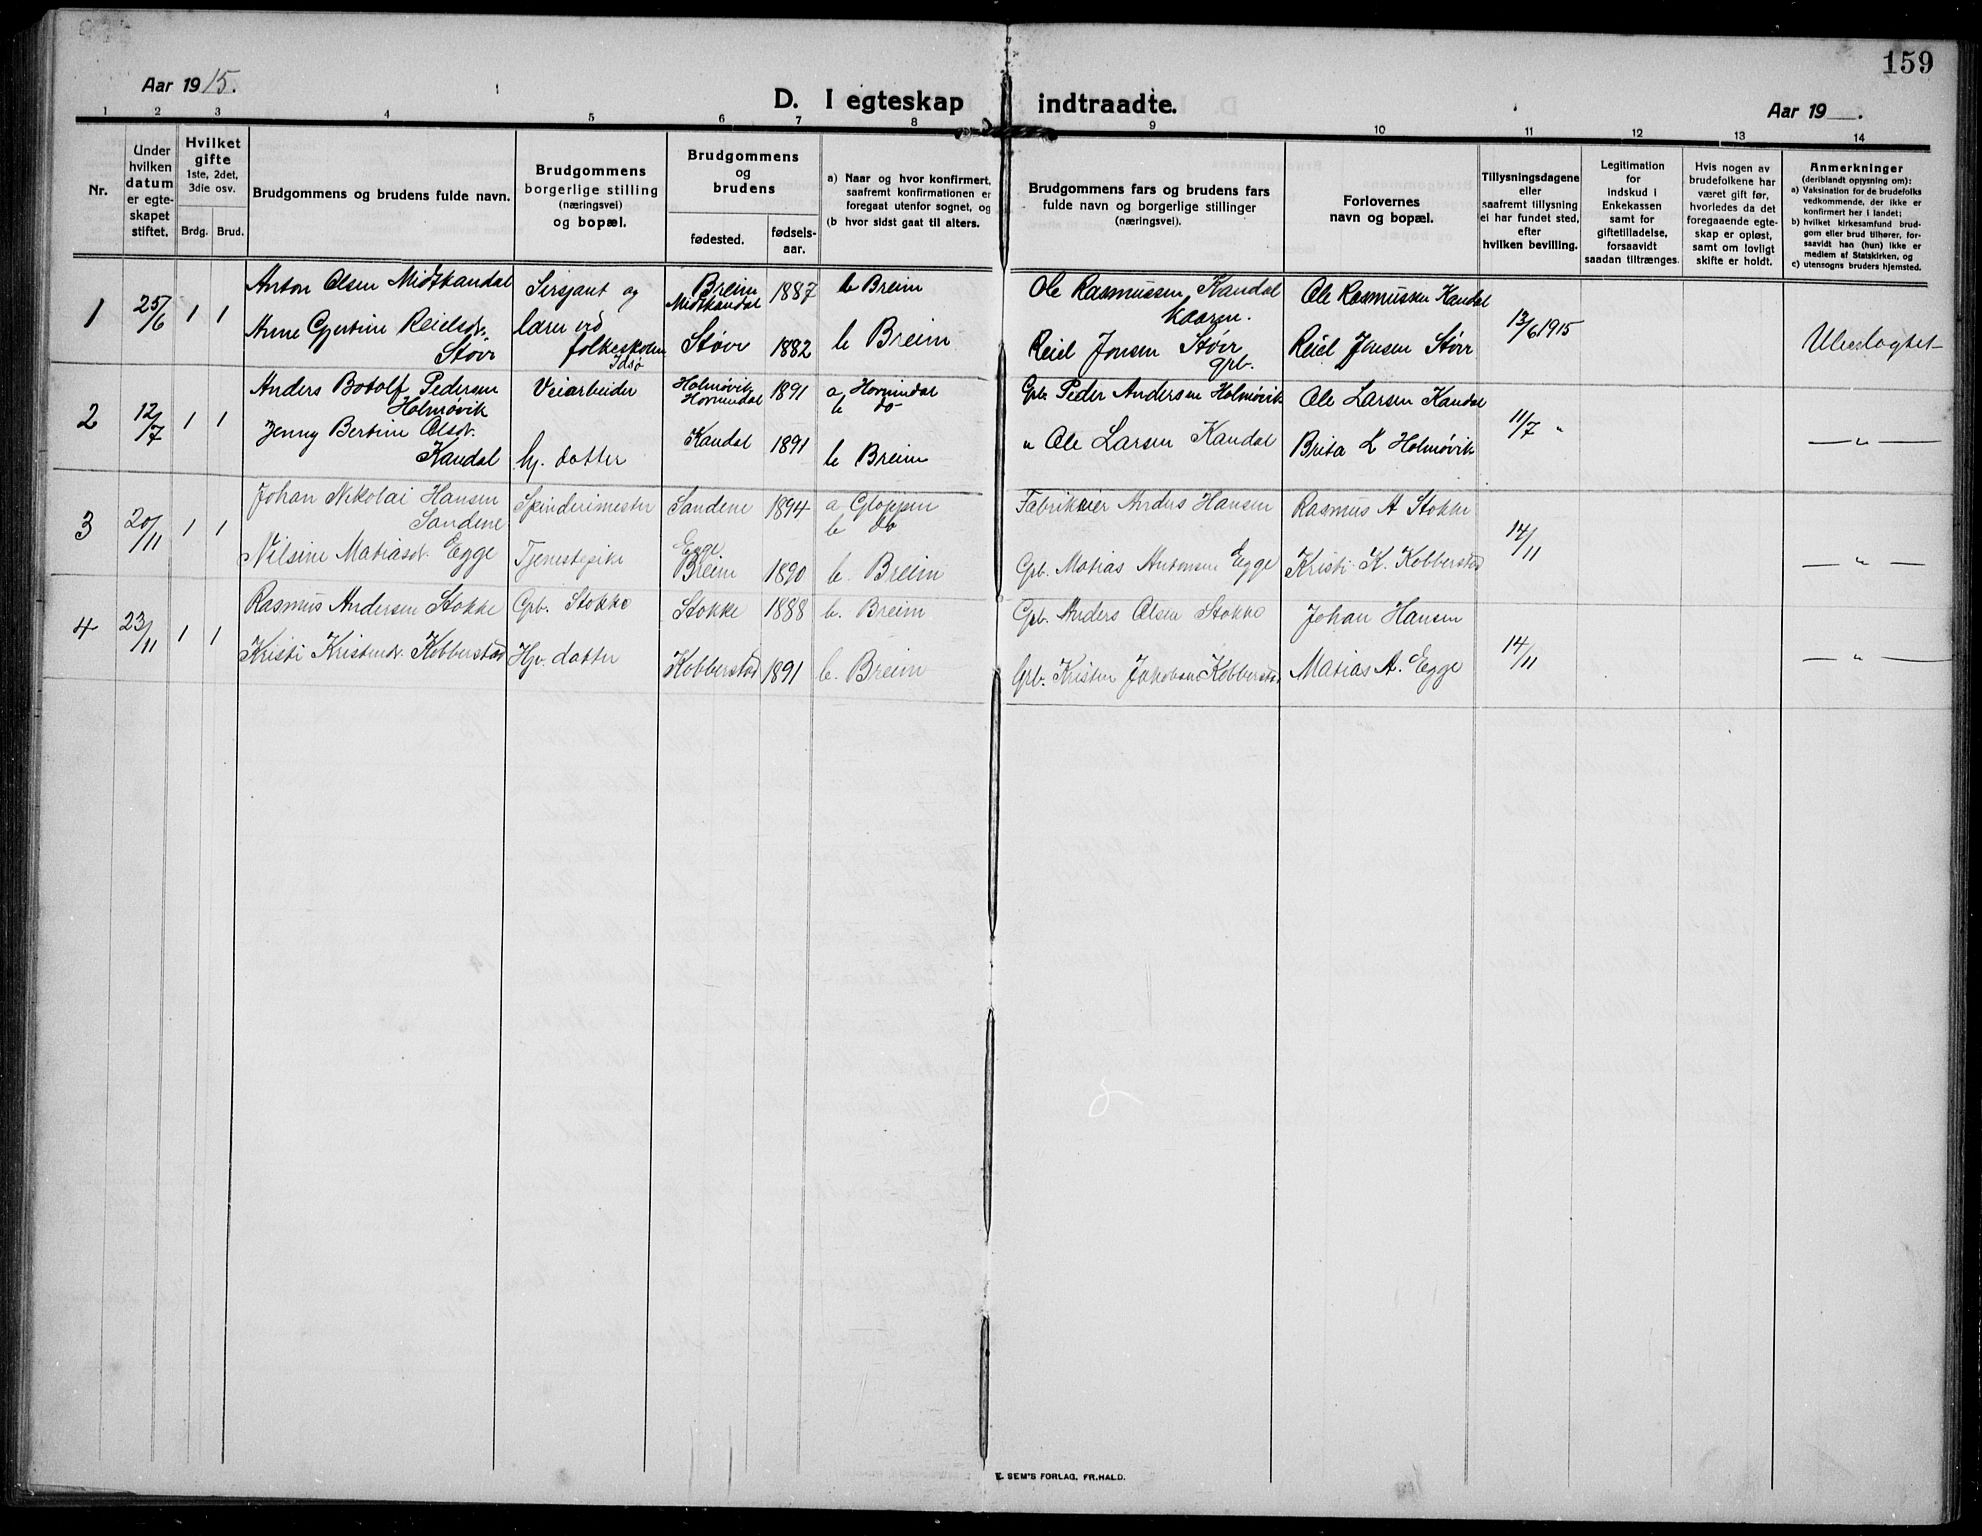 159
Aar 1915.
D. I egteskap indtraadte.
Aar 19 .
1 2 3 4 5 6 7 8 9 10 11 12 13 14
Nr.
Under hvilken datum er egte-skapet stiftet.
Hvilket gifte
1ste, 2det, 3die osv.
Brdg. Brud.
Brudgommens og brudens fulde navn.
Brudgommens borgerlige stilling (næringsvei) og bopæl.
Brudgommens og brudens
fødested.
fødsels-aar.
a) Naar og hvor konfirmert, saafremt konfirmationen er foregaat utenfor sognet, og
(b hvor sidst gaat til alters.
Brudgommens fars og brudens fars fulde navn og borgerlige stillinger (næringsvei).
Forlovernes navn og bopæl.
Tillysningsdagene eller saafremt tillysning ei har fundet sted, efter hvilken bevilling.
Legitimation for indskud i Enkekassen samt for giftetilladelse, forsaavidt saadan tiltrænges.
Hvis nogen av brudefolkene har været gift før, hvorledes da det foregaaende egte-skap er opløst, samt om lovligt skifte er holdt.
Anmerkninger
(deriblandt opysning om):
a) Vaksination for de brudefolks vedkommende, der ikke er konfirmert her i landet;
b) hvilket kirkesamfund brud-gom eller brud tilhører, for-saavidt han (hun) ikke er medlem af Statskirken, og
c) utensogns bruders hjemsted.
1 25/6 1 1 Anton Olsen Midtkandal Sersjant og Breim Midtkandal 1887 b Breim Ole Rasmussen Kandal Kaaren. Ole Rasmussen Kandal 13/6 1915
Anne Gjertine Reielsdr. Støir lærer ved folkeskolen Støir 1882 b Breim Reiel Jonsen Støir grb. Reiel Jonsen Støir Ubeslegtet
2 12/7 1 1 Anders Botolf Pedersen Holmøvik Veiarbeider Holmøvik Hornindal 1891 a Hornindal b do Grb. Peder Andersen Holmøvik Ole Larsen Kandal 11/7 "
Jenny Bertine Olsdr. Kandal hj. datter Kandal 1891 b Breim " Ole Larsen Kandal Brita L Holmøvik — " —
3 20/11 1 1 Johan Nikolai Hansen Sandene Spinderimester Sandene 1894 a Gloppen b do Fabrikeier Anders Hansen Rasmus A Stokke 14/11
Nilsine Matiasdr. Egge Tjenestepike Egge Breim 1890 b. Breim Grb. Matias Antonsen Egge Kristi K. Kobberstad — " —
4 23/11 1 1 Rasmus Andersen Stokke Grb. Stokke Stokke 1888 b. Breim Grb. Anders Olsen Stokke Johan Hansen 14/11
Kristi Kristensdr. Kobberstad Hjv. datter Kobberstad 1891 b. Breim Grb. Kristen Jakobsen Kobberstad Matias A. Egge — " —
E. SEM'S FORLAG, FR.HALD.